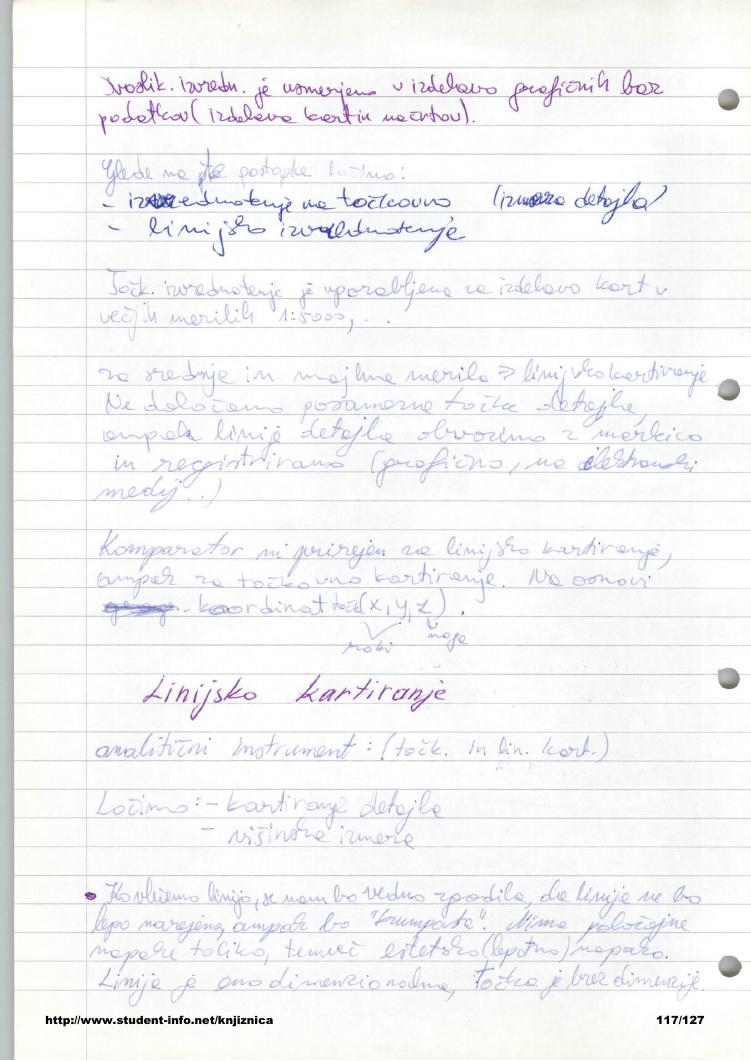 Dvoslik. izvredn. je usmerjeno v izdelavo grafičnih baz
podatkov (izdelava kart in načrtov).
Glede na te postopke ločimo:
- izvrednotenje na točkovno (izmera detajla)
- linijsko izvrednotenje
Točk. izvrednotenje je uporabljeno za izdelavo kart v
večjih merilih 1:5000, ...
za srednje in majhna merila => linijsko kartiranje
Ne določamo posamezne točke detajla,
ampak linije detajla obvozimo z markico
in registriramo (grafično, na elektronski
medij..)
Komparator ni prirejen za linijsko kartiranje,
ampak za točkovno kartiranje. Na osnovi
koordinat točk (x, y, z).
roki noge
Linijsko kartiranje
analitični instrument: (točk. in lin. kart.)
Ločimo: - kartiranje detajla
- višinska izmera
• Ko vlečemo linijo, se nam bo vedno zgodilo, da linija ne bo
lepo narejena, ampak bo "krumpasta". Nima položajne
napake toliko, temveč estetsko (lepotno) napako.
Linija je enodimenzionalna, točka je brez dimenzije.
http://www.student-info.net/knjiznica 117/127